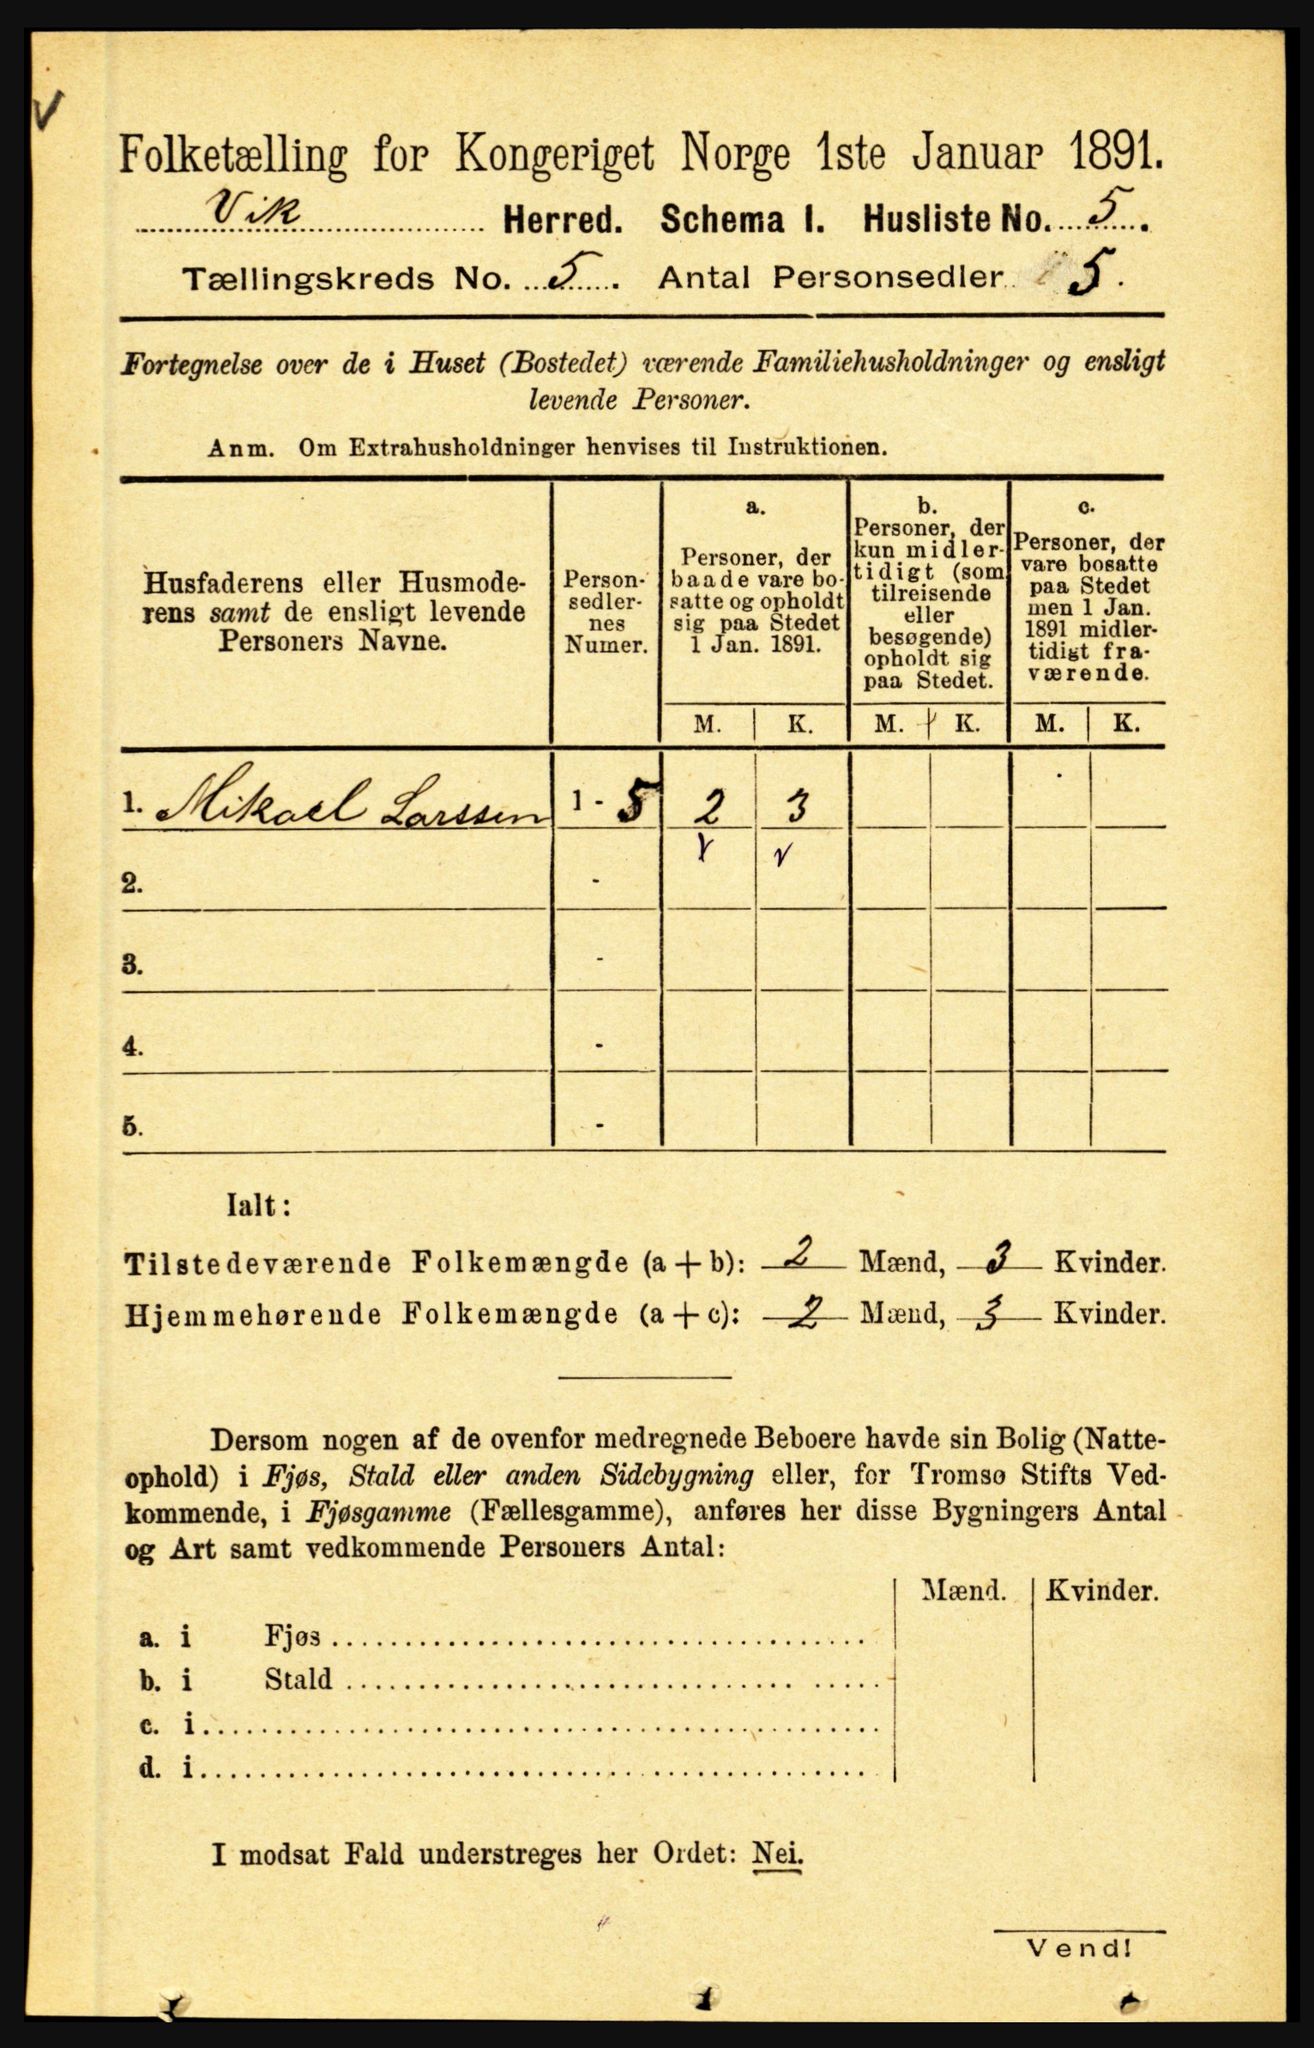 Folketælling for Kongeriget Norge 1ste Januar 1891.
Vik Herred. Schema I. Husliste No. 5.
Tællingskreds No. 5. Antal Personsedler 5.
Fortegnelse over de i Huset (Bostedet) værende Familiehusholdninger og ensligt
levende Personer.
Anm. Om Extrahusholdninger henvises til Instruktionen.
Husfaderens eller Husmode-
rens samt de ensligt levende
Personers Navne.
Person-
sedler-
nes
Numer.
a.
Personer, der
baade vare bo-
satte og opholdt
sig paa Stedet
1 Jan. 1891.
b.
Personer, der
kun midler-
tidigt (som
tilreisende
eller
besøgende)
opholdt sig
paa Stedet.
c.
Personer, der
vare bosatte
paa Stedet
men 1 Jan.
1891 midler-
tidigt fra-
værende.
M. K. M. K. M. K.
1. Mikael Larssen 1 - 5 2 3
2. -
3. -
4. -
5. -
Ialt:
Tilstedeværende Folkemængde (a + b): 2 Mænd, 3 Kvinder.
Hjemmehørende Folkemængde (a + c): 2 Mænd, 3 Kvinder.
Dersom nogen af de ovenfor medregnede Beboere havde sin Bolig (Natte-
ophold) i Fjøs, Stald eller anden Sidebygning eller, for Tromsø Stifts Ved-
kommende, i Fjøsgamme (Fællesgamme), anføres her disse Bygningers Antal
og Art samt vedkommende Personers Antal:
Mænd. Kvinder.
a. i Fjøs
b. i Stald
c. i
d. i
I modsat Fald understreges her Ordet: Nei.
Vend!